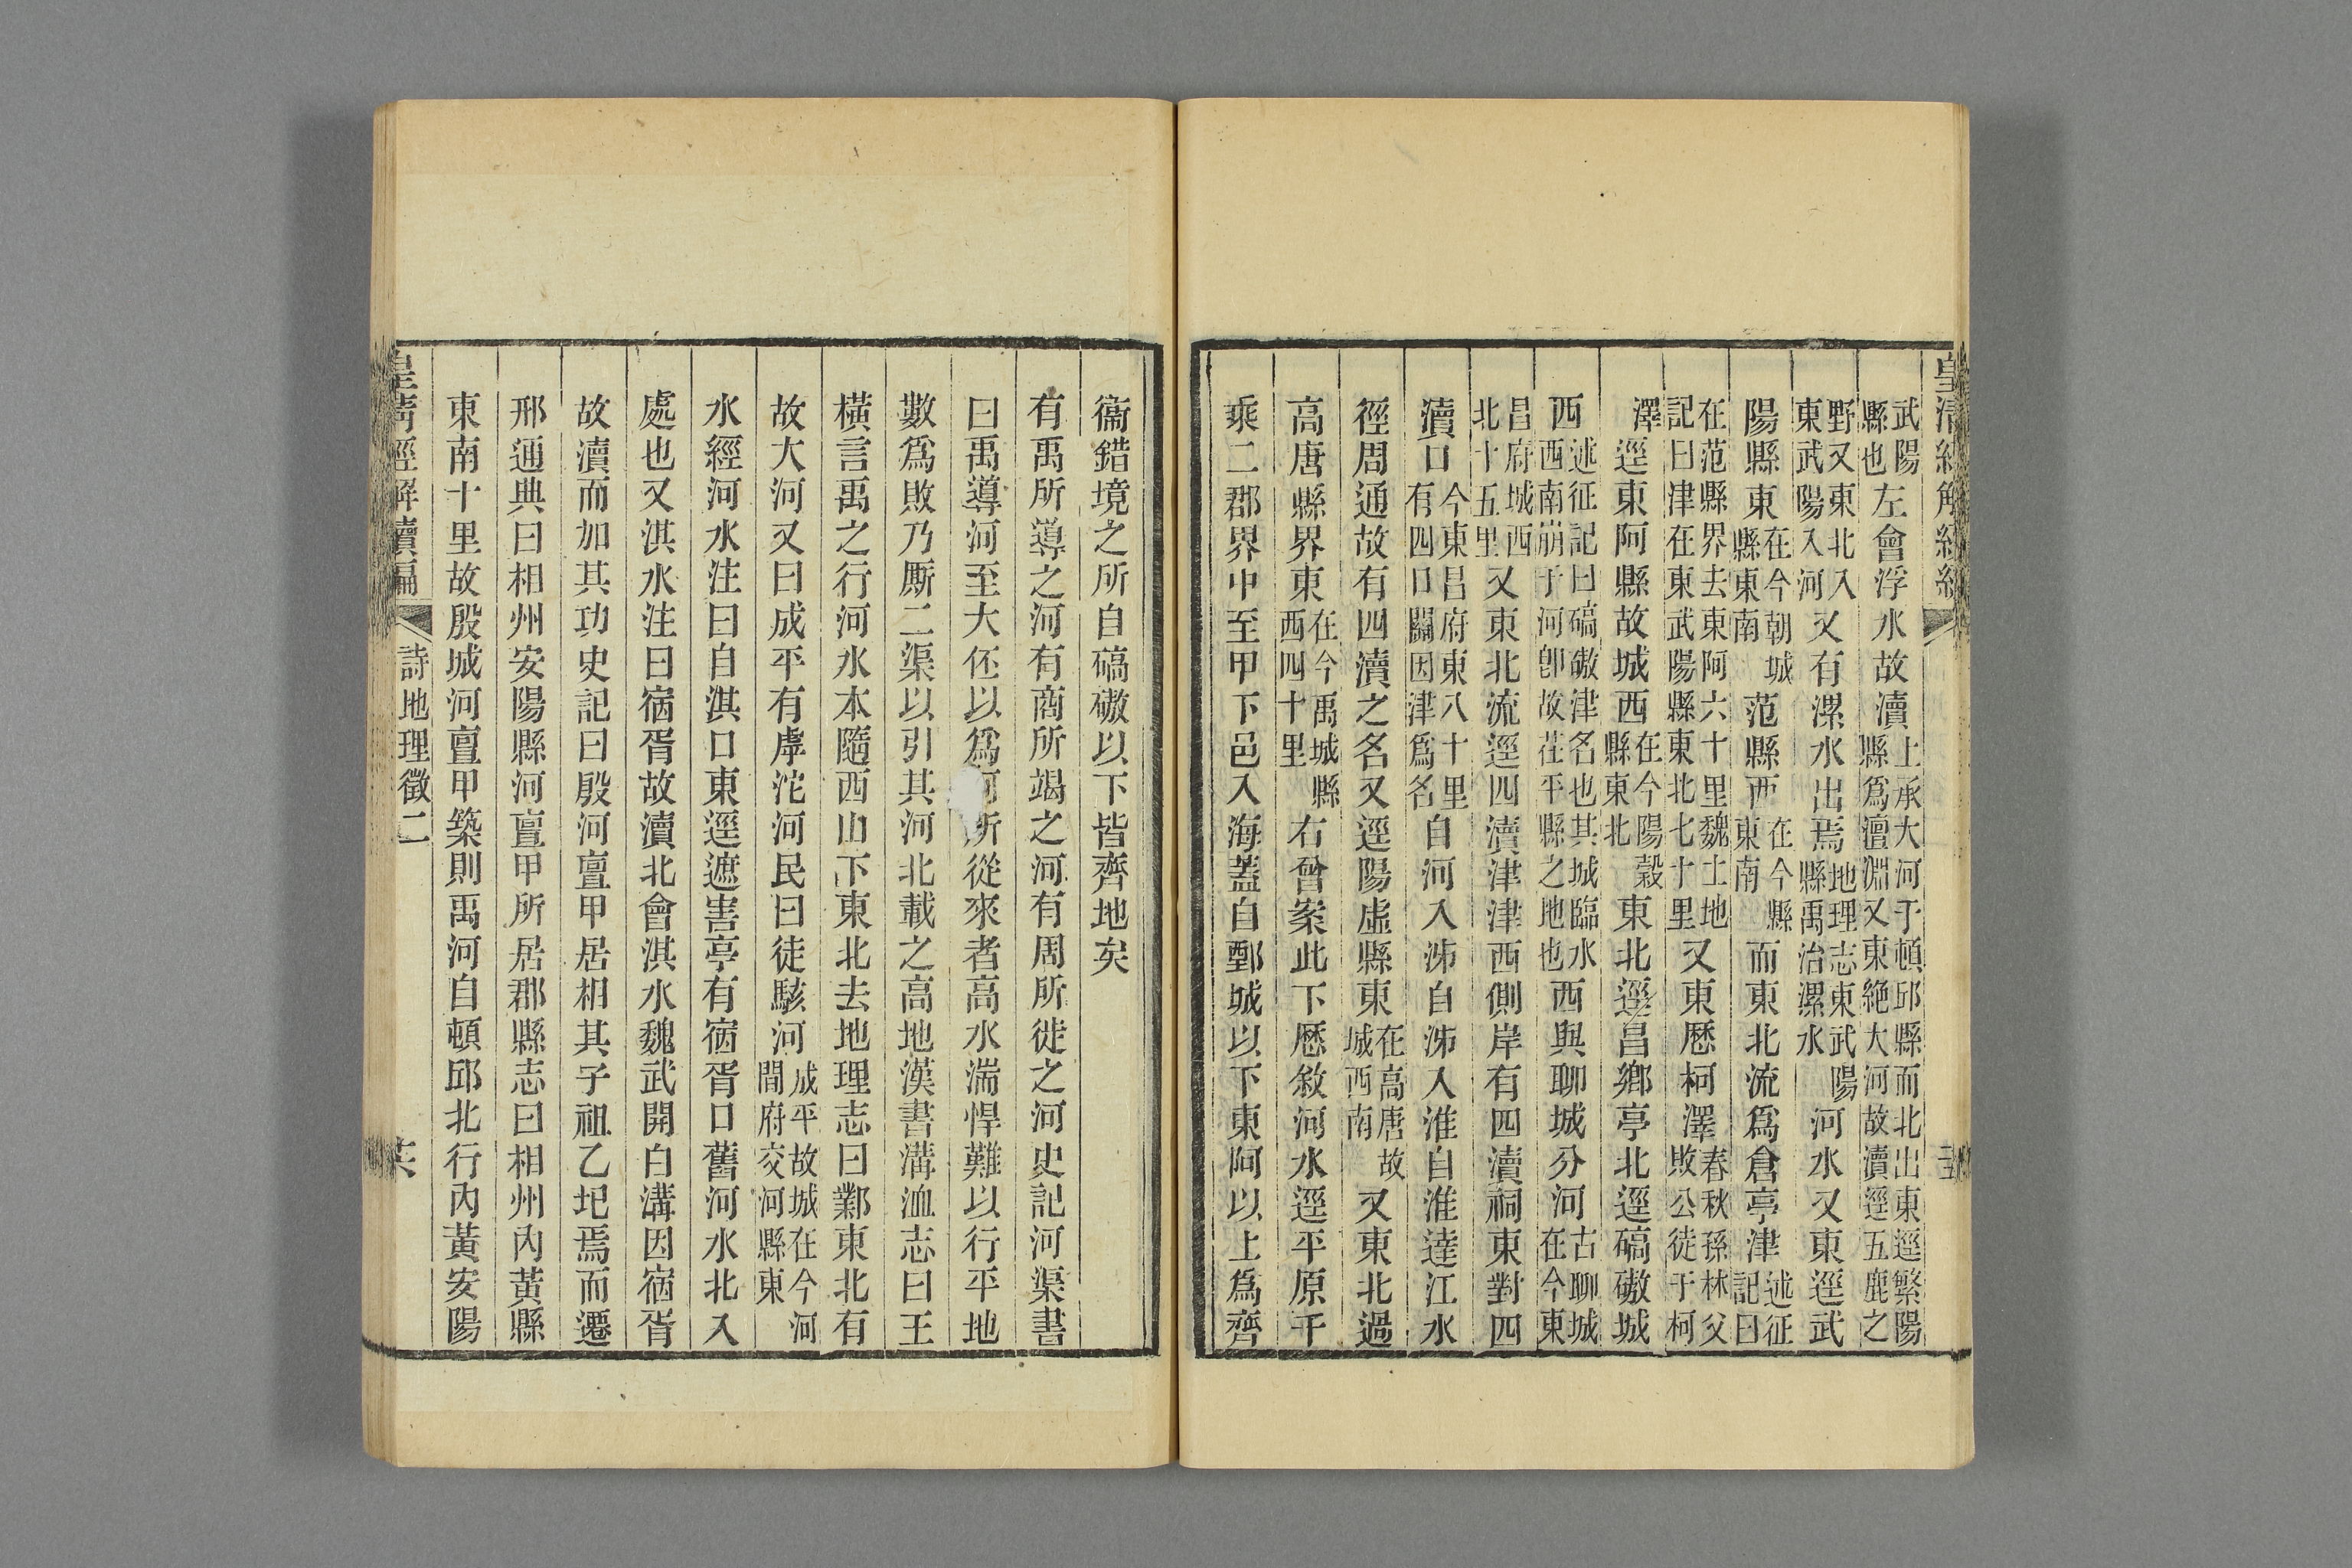 武陽縣也左會浮水故瀆上承大河于頓邱縣而北出東逕繁陽縣爲澶淵又東絕大河故瀆逕五鹿之
野又東北入東武陽入河又有漯水出焉地理志東武陽縣禹治漯水河水又東逕武
陽縣東在今朝城縣東南范縣西在今縣東南而東北流爲倉亭津述征記曰
在范縣界去東阿六十里魏土地記曰津在東武陽縣東北七十里又東歷柯澤春秋孫林父敗公徒于柯
澤逕東阿縣故城西在今陽穀縣東北東北逕昌鄉亭北逕碻磝城
西述征記曰碻磝津名也其城臨水西南崩于河卽故茌平縣之地也西與聊城分河古聊城在今東
昌府城西北十五里又東北流逕四瀆津津西側岸有四瀆祠東對四
瀆口今東昌府東八十里有四口關因津爲名自河入泲自泲入淮自淮達江水
徑周通故有四瀆之名又逕陽虛縣東在高唐故城西南又東北過
高唐縣界東在今禹城縣西四十里右曾案此下歷敘河水逕平原千
乘二郡界中至甲下邑入海蓋自鄄城以下東阿以上爲齊
衞錯境之所自碻磝以下皆齊地矣
有禹所導之河有商所竭之河有周所徙之河史記河渠書
曰禹導河至大伾以爲河所從來者高水湍悍難以行平地
數爲敗乃厮二渠以引其河北載之高地漢書溝洫志曰王
橫言禹之行河水本隨西山下東北去地理志曰鄴東北有
故大河又曰成平有虖沱河民曰徒駭河成平故城在今河間府交河縣東
水經河水注曰自淇口東逕遮害亭有宿胥口舊河水北入
處也又淇水注曰宿胥故瀆北會淇水魏武開白溝因宿胥
故瀆而加其功史記曰殷河亶甲居相其子祖乙圯焉而遷
邢通典曰相州安陽縣河亶甲所居郡縣志曰相州內黃縣
東南十里故殷城河亶甲築則禹河自頓邱北行內黃安陽
皇清經解續編 詩地理徵二